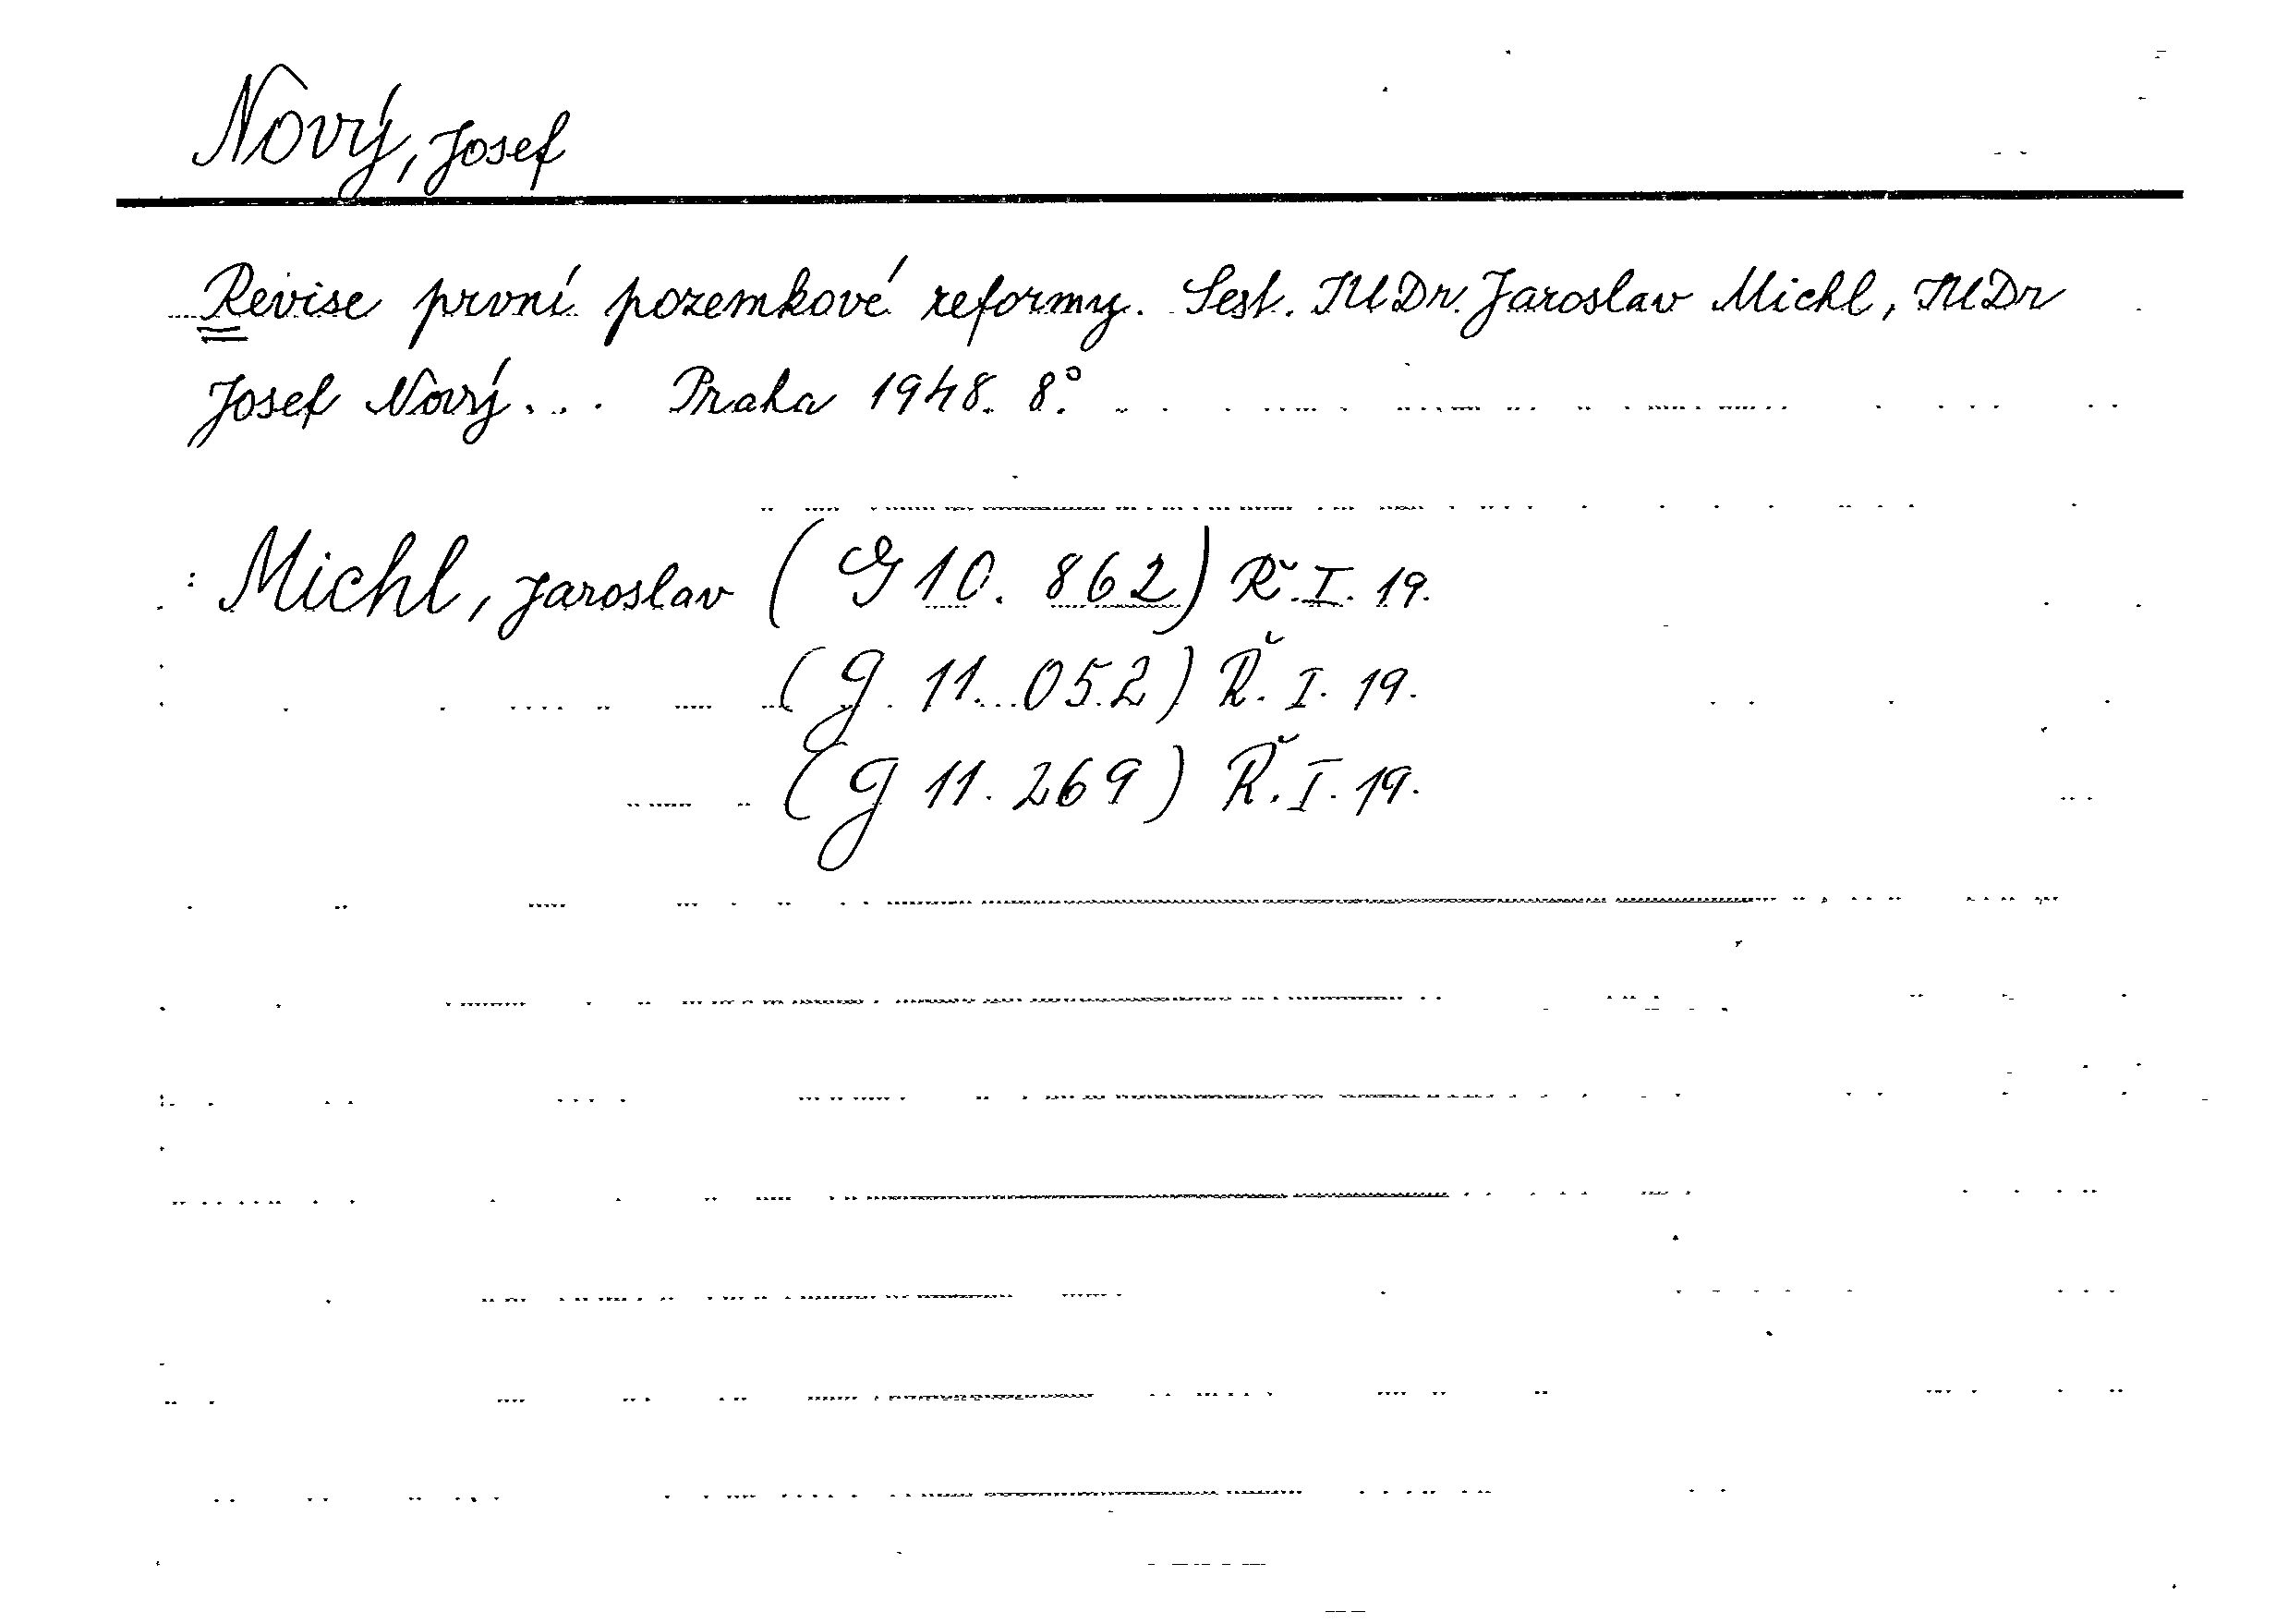 Nový, Josef
Revise první pozemkové reformy. Sest. JUDr. Jaroslav Michl, JUDr
Josef Nový... Praha 1948. 8°.
Michl, Jaroslav (G 10. 862) Ř. I. 19.
(G 11. 052) Ř. I. 19.
(G 11. 269) Ř. I. 19.